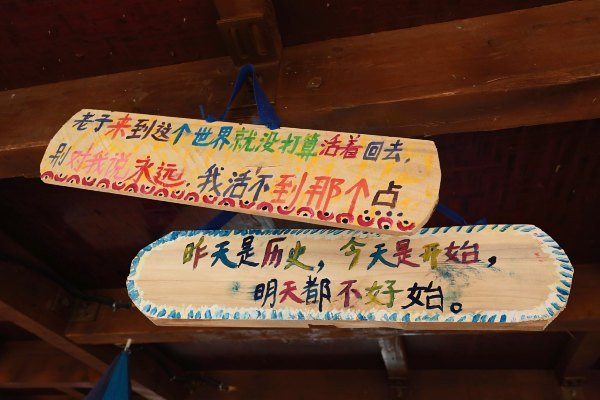 老子来到这个世界就没打算活着回去,
别对我说永远,我活不到那个点
昨天是历史,今天是开始,
明天都不好始。